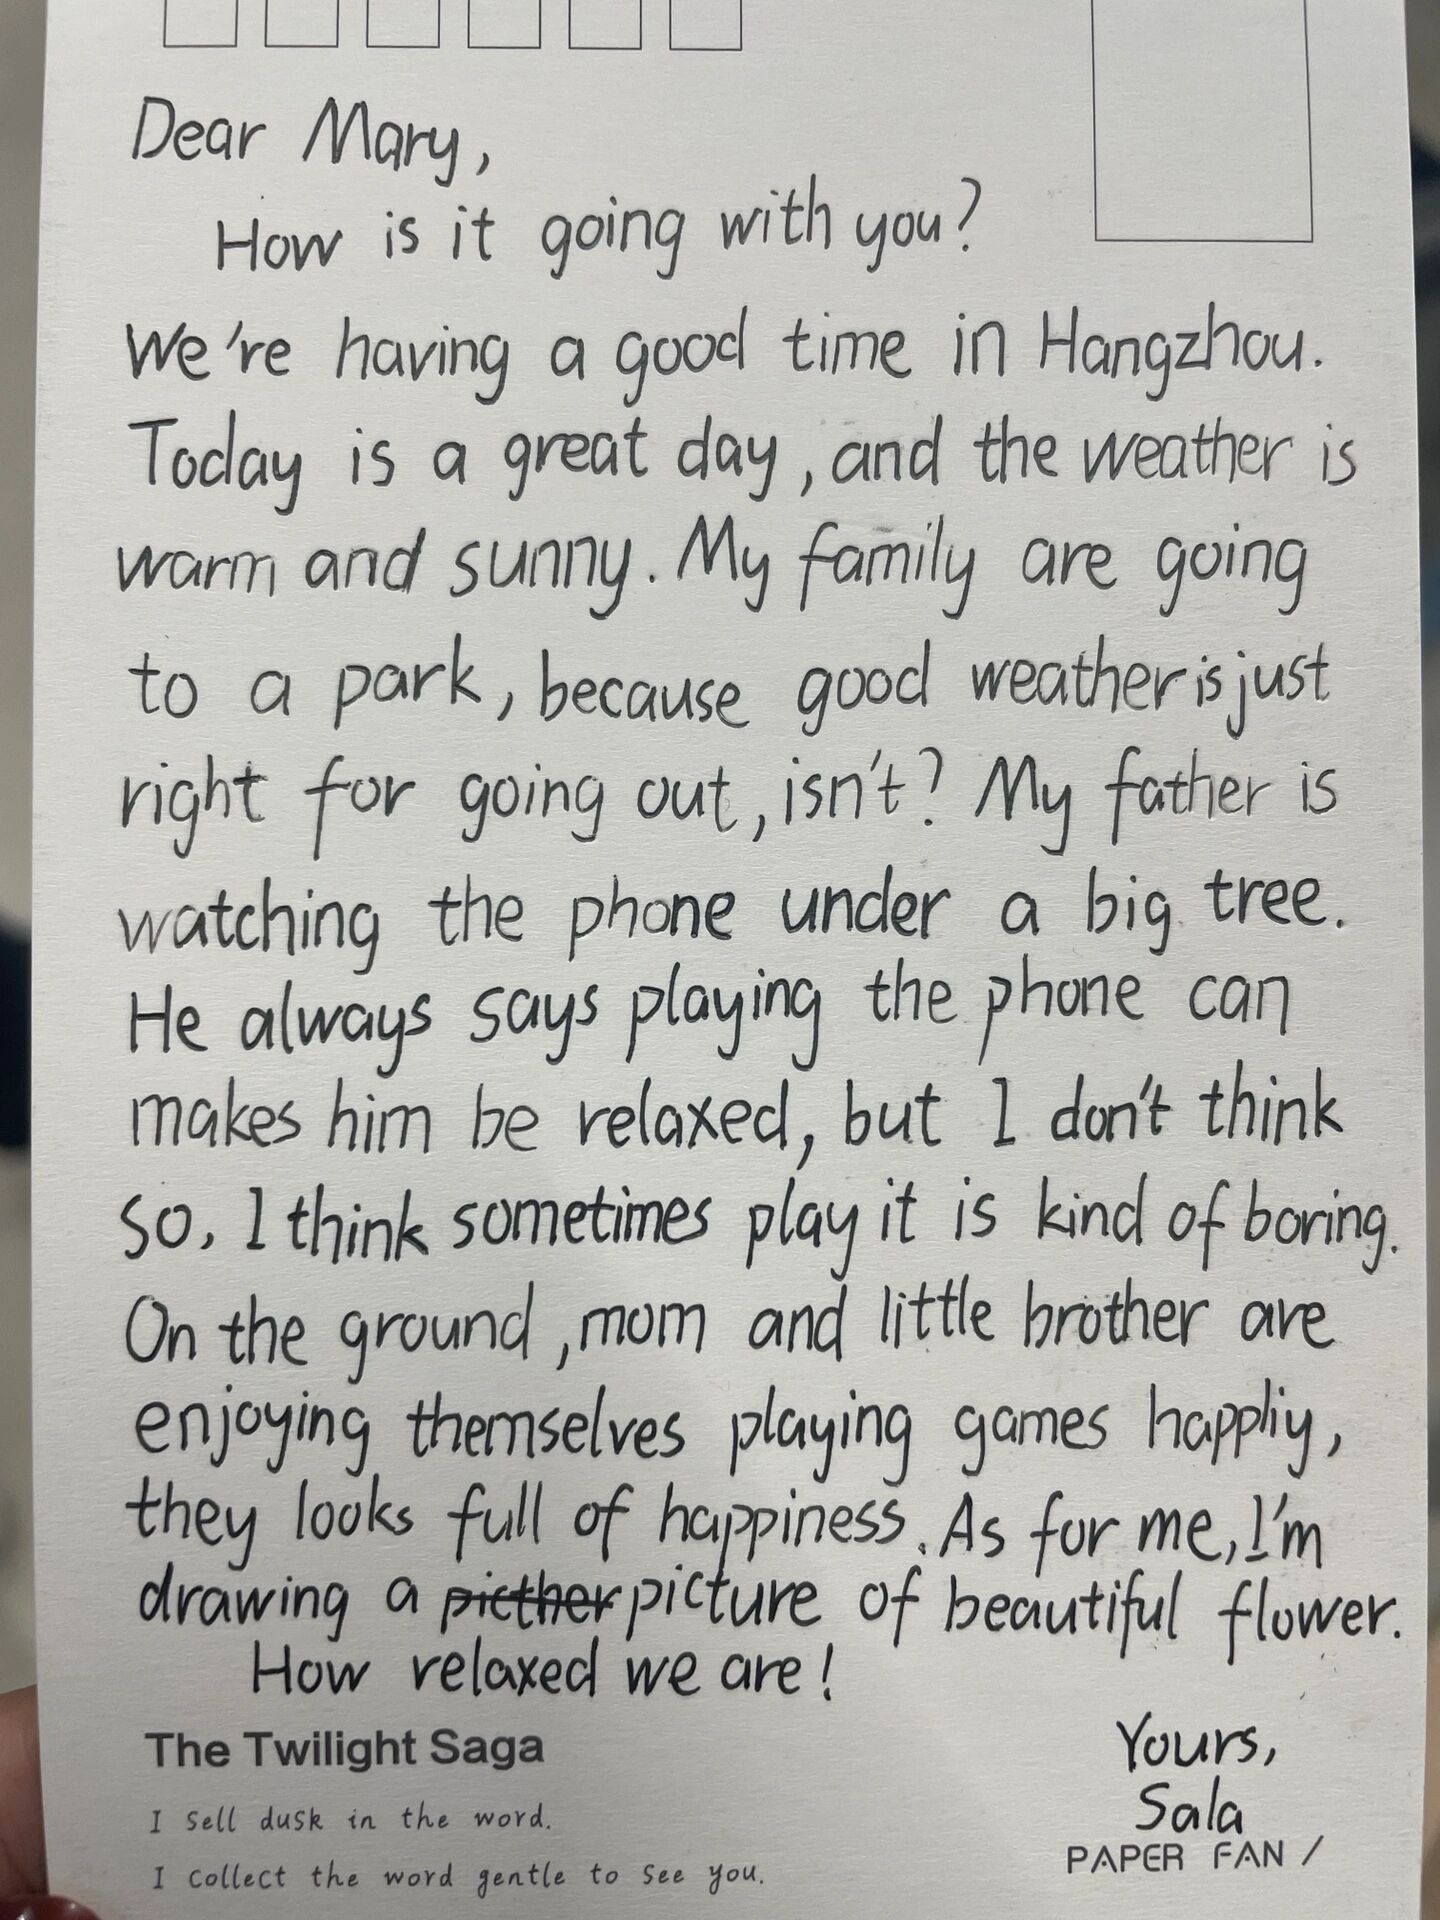 Dear Mary,
How is it going with you?
We're having a good time in Hangzhou.
Today is a great day, and the weather is
warm and sunny. My family are going
to a park, because good weather is just
right for going out, isn't? My father is
watching the phone under a big tree.
He always says playing the phone can
makes him be relaxed, but I don't think
so, I think sometimes play it is kind of boring.
On the ground, mom and little brother are
enjoying themselves playing games happliy,
they looks full of happiness. As for me, I'm
drawing a picther picture of beautiful flower.
How relaxed we are!
Yours,
Sala
The Twilight Saga
I sell dusk in the word.
I collect the word gentle to see you.
PAPER FAN /